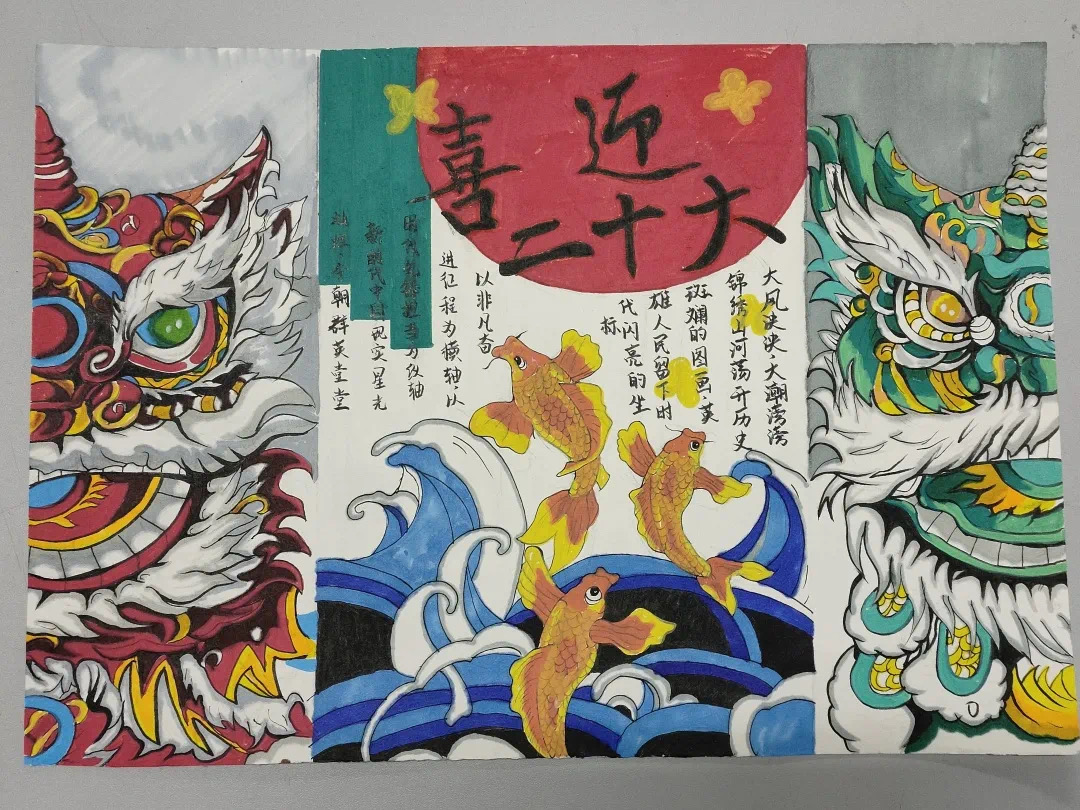 喜迎
二十大
大风泱泱、大潮滂滂
锦绣山河荡开历史
斑斓的图画、英
雄人民留下时
代闪亮的坐
标
以非凡奋
进征程为横轴、以
为纵轴
新时代中国现实星光
朝群英堂堂